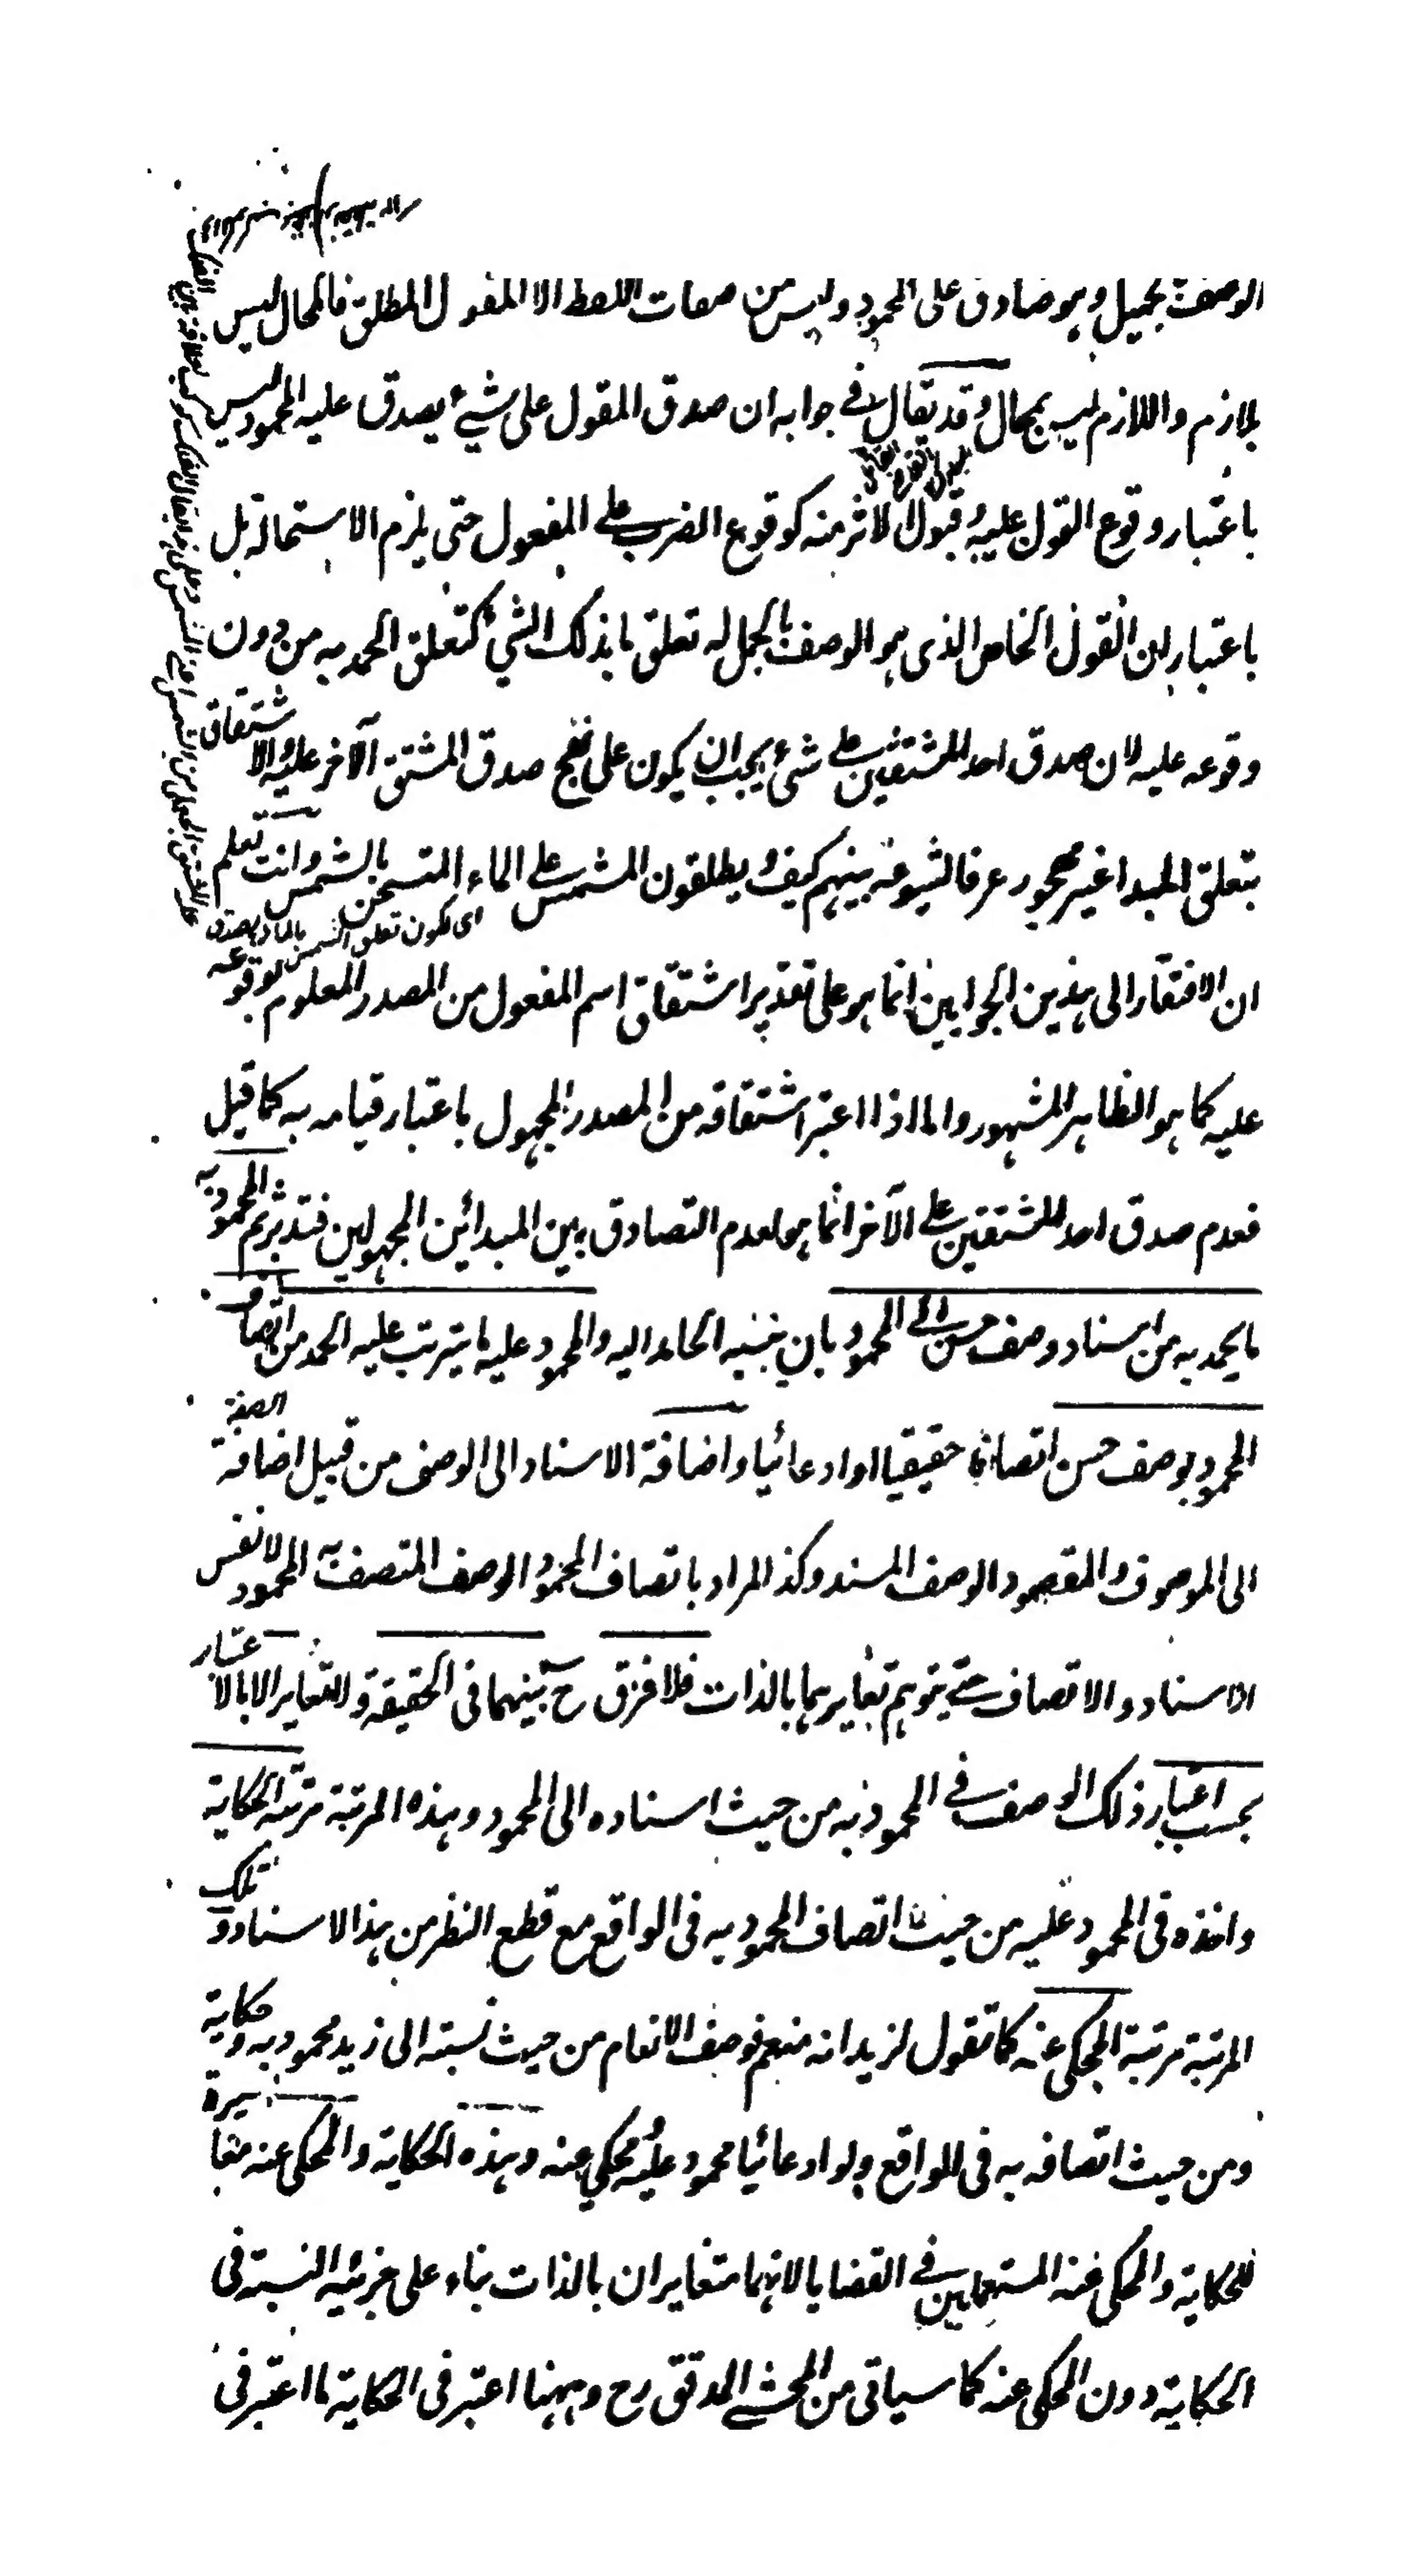 الوصف بجميل وهو صادق على المحمود وليس من صفات اللفظ الا المقول المطلق فالمحال ليس
بلازم واللازم ليس بمحال وقد يقال في جوابه ان صدق المقول على شيء يصدق عليه المحمود ليس
باعتبار وقوع القول عليه وقبول الاثر منه كوقوع الضرب على المفعول حتى يلزم الاستحالة بل
باعتبار ان القول الخاص الذى هو الوصف بالجميل له تعلق ما بذلك الشيء كتعلق الحمد به من دون
وقوعه عليه لان صدق احد المشتقين على شيء يجب ان يكون على نهج صدق المشتق الآخر عليه والاشتقاق
بتعلق المبدا غير مهجور عرفا لشيوعه بينهم كيف ويطلقون المشمس على الماء المتسخن بالشمس وانت تعلم
ان الافتقار الى هذين الجوابين انما هو على تقدير اشتقاق اسم المفعول من المصدر المعلوم لوقوعه
عليه كما هو الظاهر المشهور واما اذا اعتبر اشتقاقه من المصدر المجهول باعتبار قيامه به كما قيل
فعدم صدق احد المشتقين على الآخر انما هو لعدم التصادق بين المبدائين المجهولين فتدبر ثم المحمود به
ما يحمد به من اسناد وصف حسن الى المحمود بان ينسبه الحامد اليه والمحمود عليه ما يترتب عليه الحمد من اتصاف
المحمود بوصف حسن اتصافا حقيقيا او ادعائيا واضافة الاسناد الى الوصف من قبيل اضافة الصفة
الى الموصوف والمقصود الوصف المسند وكذا المراد باتصاف المحمود الوصف المتصف به المحمود لا نفس
الاسناد والاتصاف حتى يتوهم تغايرهما بالذات فلا فرق ح بينهما فى الحقيقة والتغاير الا بالاعتبار
بحسب اعتبار ذلك الوصف في المحمود به من حيث اسناده الى المحمود وهذه المرتبة مرتبة الحكاية
واخذه فى المحمود عليه من حيث اتصاف المحمود به فى الواقع مع قطع النظر من هذا الاسناد وتلك
المرتبة مرتبة المحكى عنه كما تقول لزيد انه منعم فوصف الانعام من حيث نسبته الى زيد محمود به وحكاية
ومن حيث اتصافه به فى الواقع ولو ادعائيا محمود عليه ومحكي عنه وهذه الحكاية والمحكى عنه مغايرة
للحكاية والمحكى عنه المستعملين في القضايا لانهما متغايران بالذات بناء على جزئية النسبة فى
الحكاية دون المحكى عنه كما سياتى من المحشي المدقق رح وههنا اعتبر فى الحكاية ما اعتبر فى